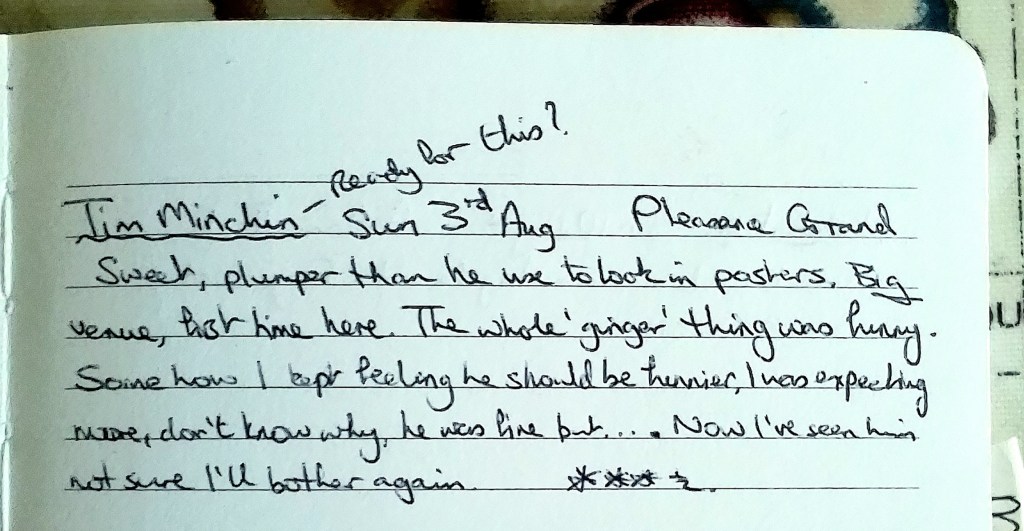 Ready for this?
Tim Minchin - Sun 3rd Aug Pleasance Grand
Sweet, plumper than he use to look in posters. Big
venue, first time here. The whole 'ginger' thing was funny.
Somehow I kept feeling he should be funnier, I was expecting
more, don't know why, he was fine but.... Now I've seen him
not sure I'll bother again. *** ½.